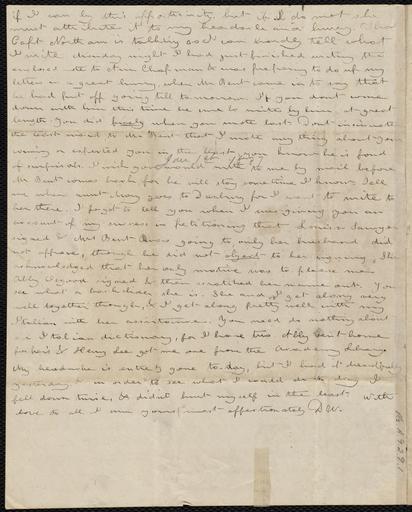 if I can by this opportunity, but if I do not she
must attribute it to my headache and hurry. When
Capt Northam is talking so I can hardly tell what
I write. Monday night I had just finished writing the
enclosed note to Ann Chapman & was preparing to do up my
letter in a great hurry, when Mr Bent came in to say that
he had put off going till tomorrow. If you don't come
down with him this time be sure to write by him at great
length. You did finely when you wrote last. Don't insinuate
the least word to Mr Bent that I wrote any thing about your
coming or expected you in the least you know he is fond
of surprisals. I wish you would write to me by mail before
Mr Bent comes back for he will stay some time I know. Tell
me when aunt Mary goes to Duxbury for I want to write to
her there. I forgot to tell you when I was giving you an
account of my success in petitioning that Louisa Sawyer
signed & Mrs Bent was going to, only her husband did
not approve, though he did not object to her signing. She
acknowledged that her only motive was to please me.
Abby Osgood signed & then scratched her name out. You
see what a backslider she is. She and I get along very
well together though, & I get along pretty well with my
Italian with her assistance. You need do nothing about
an Italian dictionary, for I have two. Abby sent home
for hers & Henry Lee got me one from the Academy Library.
My headache is entirely gone to-day, but I had it dreadfully
yesterday & in order to see what I could do to-day I
fell down twice, & didn't hurt myself in the least. With
love to all I am yours most affectionately DW.